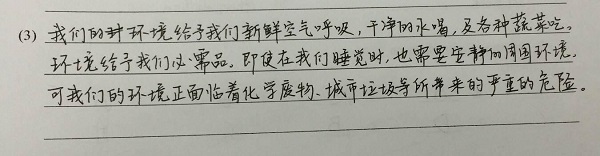 (3) 我们的环境给予我们新鲜空气呼吸，干净的水喝，及各种蔬菜吃。
环境给予我们必需品。即使在我们睡觉时，也需要安静的周围环境。
可我们的环境正面临着化学废物、城市垃圾等所带来的严重的危险。